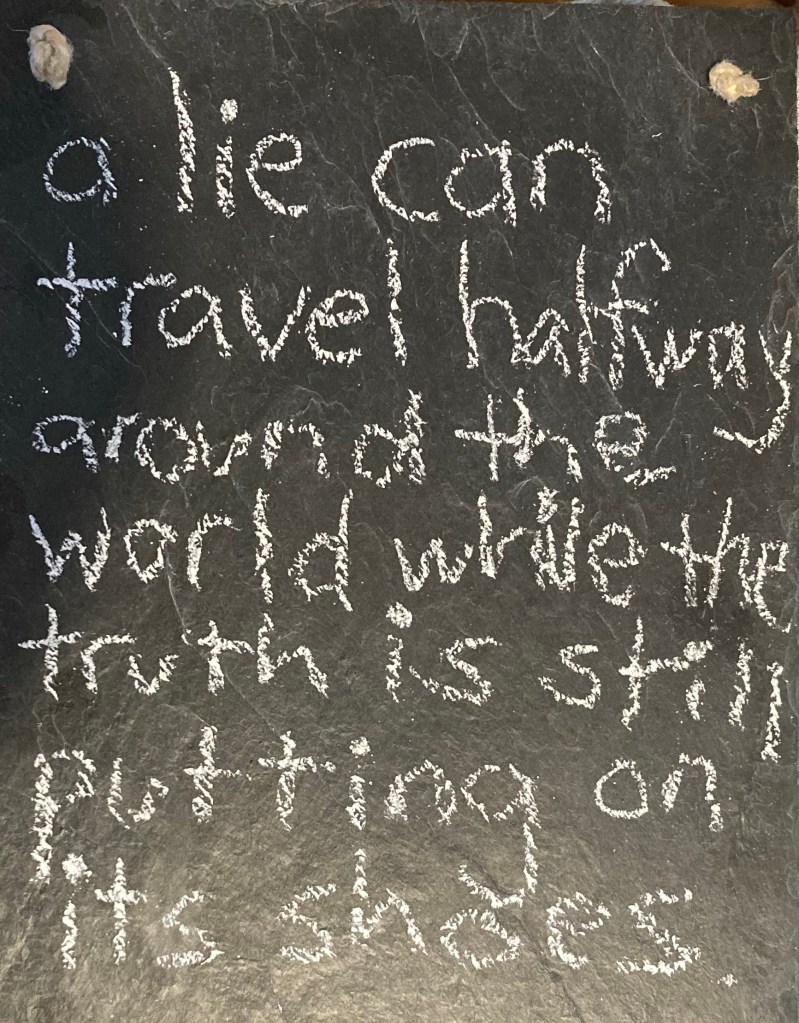 a lie can
travel halfway
around the
world while the
truth is still
putting on
its shoes.